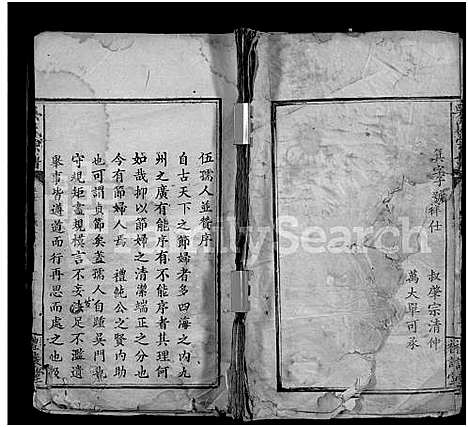 真字號祥仕
叔肇宗清仲
萬大畢可承
伍孺人並贊序
自古天下之節婦者多四海之內九
州之廣有能序有不能序者其理何
如哉抑以節婦之清潔端正之分也
今有節婦人焉禮純公之賢內助
也可謂貞節矣蓋孺人自踵吳門
守規矩盡規模言不妄法足不濫遺
舉事皆遵道而行再思而處之也
FamilySearch